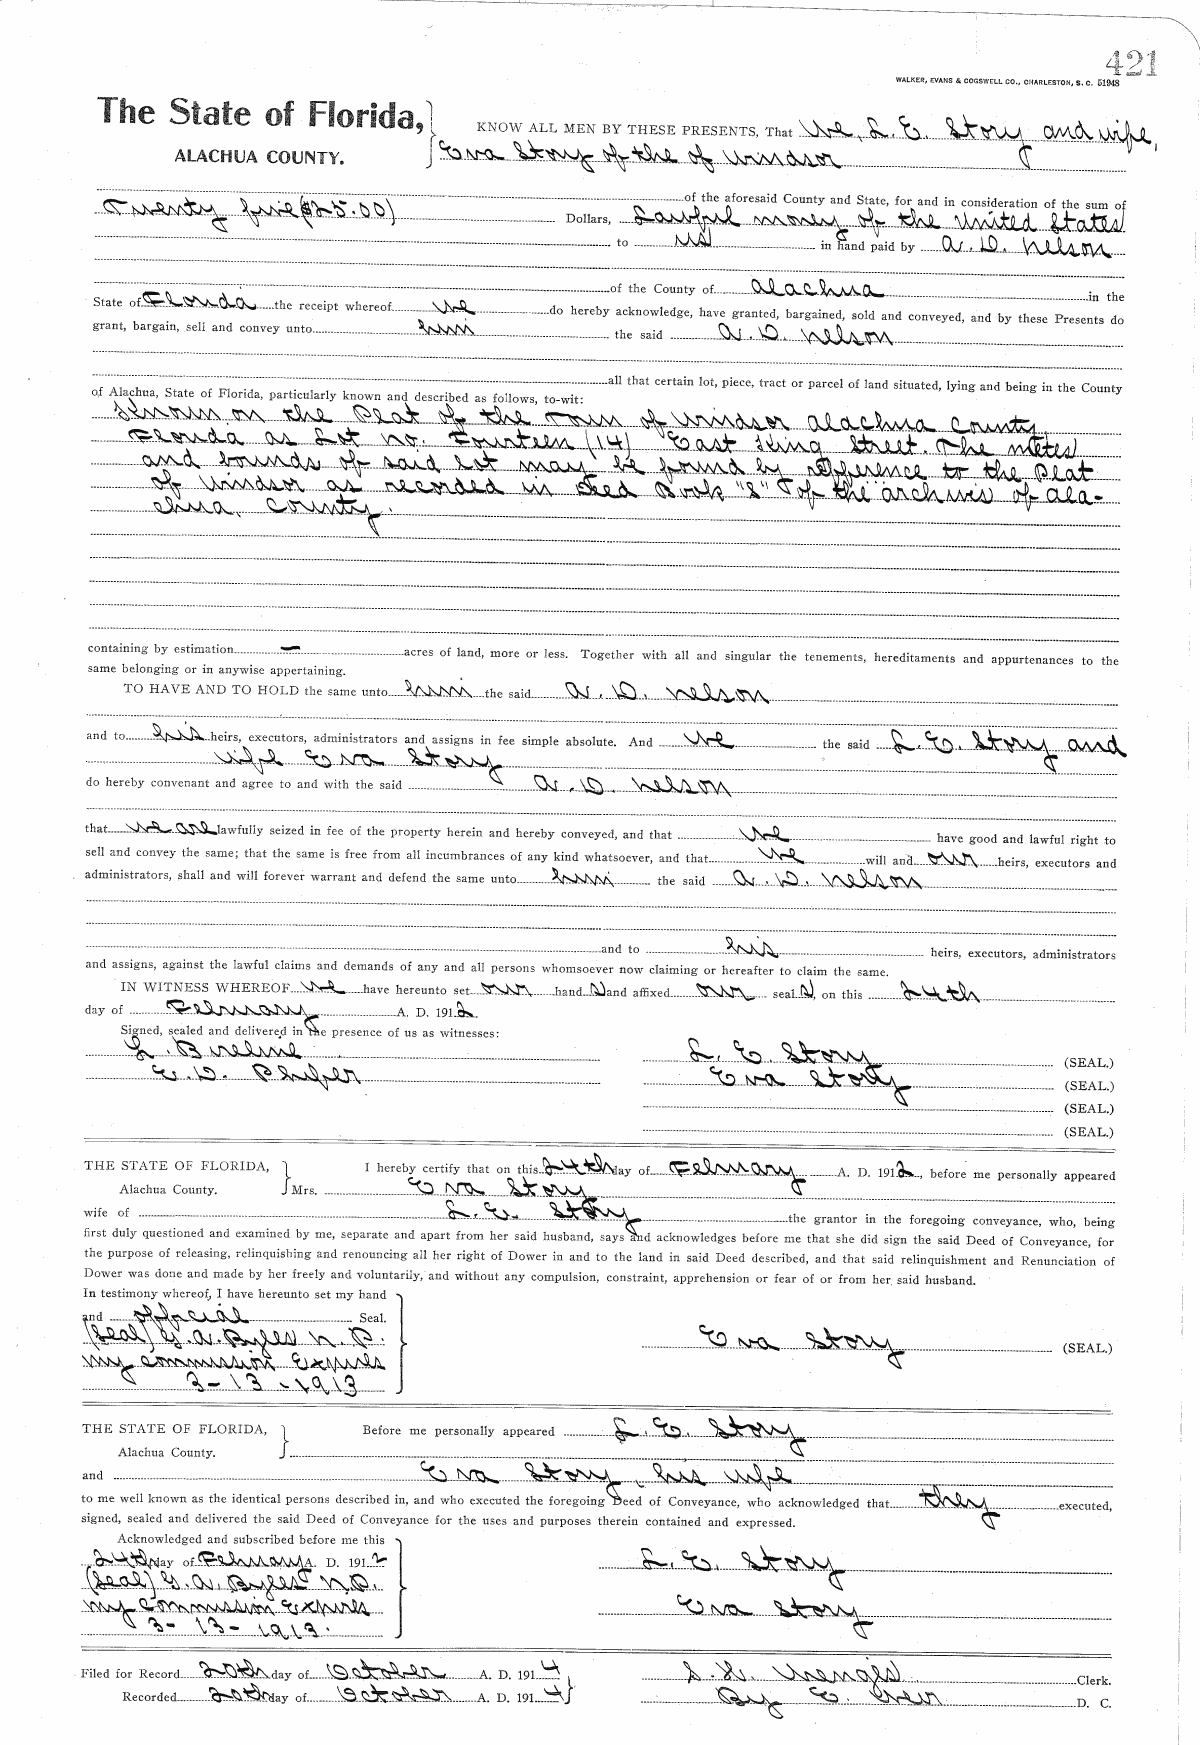 421
WALKER, EVANS & COGSWELL CO., CHARLESTON, S. C. 51948
The State of Florida,
ALACHUA COUNTY.
KNOW ALL MEN BY THESE PRESENTS, That We, L. E. Story and wife,
Eva Story of the of Windsor
of the aforesaid County and State, for and in consideration of the sum of
Twenty five ($25.00) Dollars, Lawful money of the United States
to us in hand paid by A. D. Nelson
of the County of Alachua in the
State of Florida the receipt whereof we do hereby acknowledge, have granted, bargained, sold and conveyed, and by these Presents do
grant, bargain, sell and convey unto him the said A. D. Nelson
all that certain lot, piece, tract or parcel of land situated, lying and being in the County
of Alachua, State of Florida, particularly known and described as follows, to-wit:
Known on the Plat of the Town of Windsor Alachua County,
Florida as Lot no. Fourteen (14) East King Street. The metes
and bounds of said Lot may be found by refference to the Plat
of Windsor as recorded in Deed Book "S" of the archivis of Ala-
chua, County.
containing by estimation — acres of land, more or less. Together with all and singular the tenements, hereditaments and appurtenances to the
same belonging or in anywise appertaining.
TO HAVE AND TO HOLD the same unto him the said A. D. Nelson
and to his heirs, executors, administrators and assigns in fee simple absolute. And we the said L. E. Story and
wife Eva Story
do hereby convenant and agree to and with the said A. D. Nelson
that we are lawfully seized in fee of the property herein and hereby conveyed, and that we have good and lawful right to
sell and convey the same; that the same is free from all incumbrances of any kind whatsoever, and that we will and our heirs, executors and
administrators, shall and will forever warrant and defend the same unto him the said A. D. Nelson
and to his heirs, executors, administrators
and assigns, against the lawful claims and demands of any and all persons whomsoever now claiming or hereafter to claim the same.
IN WITNESS WHEREOF we have hereunto set our hand s and affixed our seal s, on this 24th
day of February A. D. 1912.
Signed, sealed and delivered in the presence of us as witnesses:
L. Bireline L. E. Story (SEAL.)
E. D. Phifer Eva Story (SEAL.)
(SEAL.)
(SEAL.)
THE STATE OF FLORIDA, I hereby certify that on this 24th day of February A. D. 1912, before me personally appeared
Alachua County. Mrs. Eva Story
wife of L. E. Story the grantor in the foregoing conveyance, who, being
first duly questioned and examined by me, separate and apart from her said husband, says and acknowledges before me that she did sign the said Deed of Conveyance, for
the purpose of releasing, relinquishing and renouncing all her right of Dower in and to the land in said Deed described, and that said relinquishment and Renunciation of
Dower was done and made by her freely and voluntarily, and without any compulsion, constraint, apprehension or fear of or from her said husband.
In testimony whereof, I have hereunto set my hand
and official Seal.
(Seal) G. A. Byles N. P. Eva Story (SEAL.)
My commission Expires
3-13-1913
THE STATE OF FLORIDA, Before me personally appeared L. E. Story
Alachua County.
and Eva Story, his wife
to me well known as the identical persons described in, and who executed the foregoing Deed of Conveyance, who acknowledged that they executed,
signed, sealed and delivered the said Deed of Conveyance for the uses and purposes therein contained and expressed.
Acknowledged and subscribed before me this
24th day of February A. D. 1912 L. E. Story
(Seal) G. A. Byles N.P.
My Commission Expires Eva Story
3-13-1913.
Filed for Record 20th day of October A. D. 1914 Clerk.
Recorded 20th day of October A. D. 1914 By E. D. C.